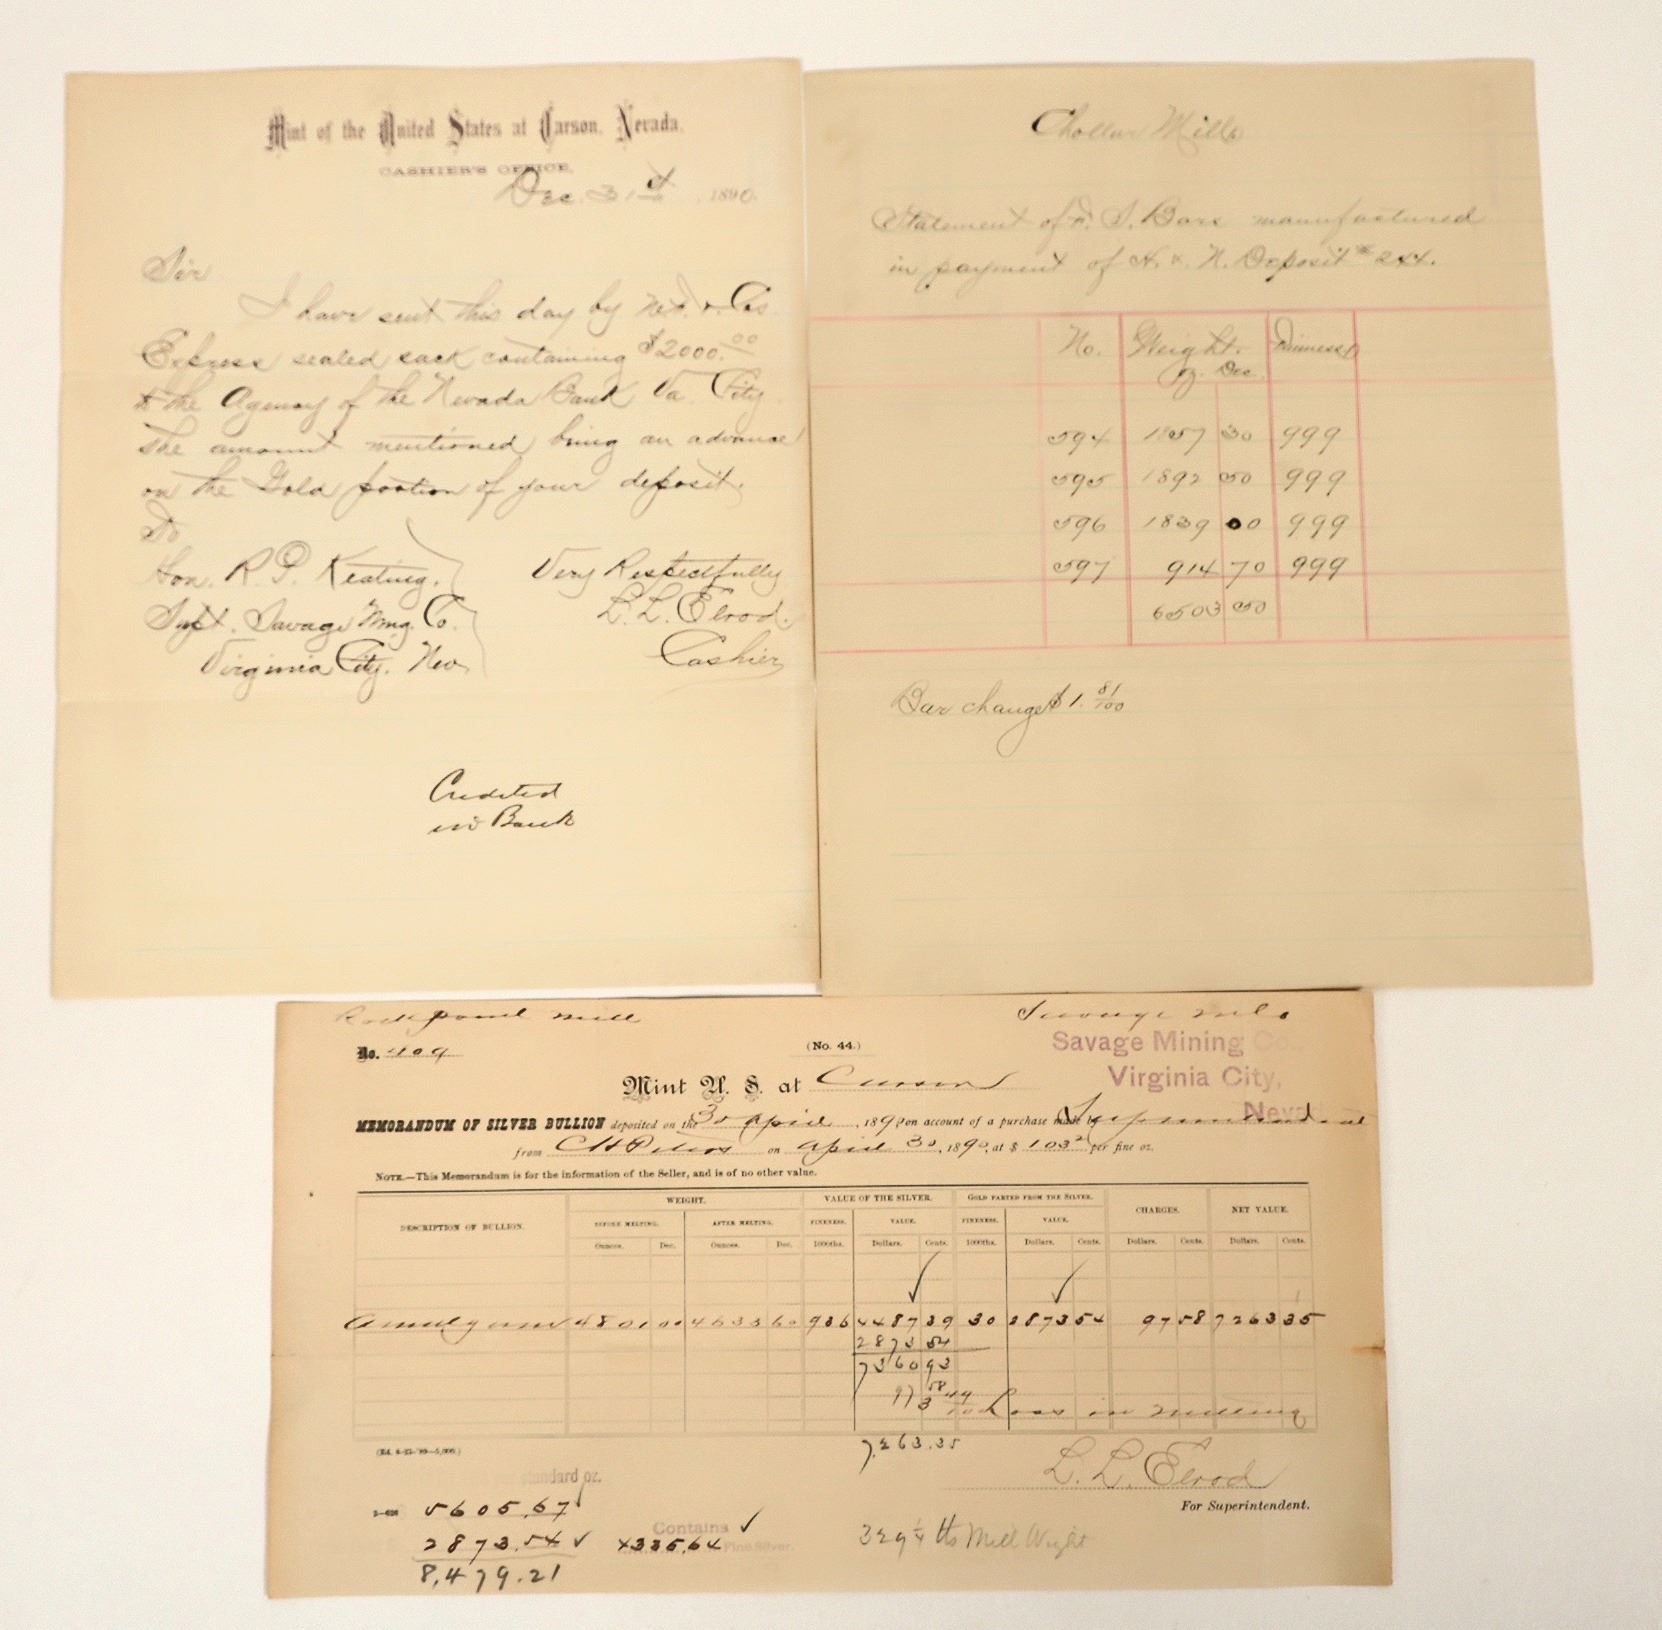 Mint of the United States at Carson, Nevada,
CASHIER'S OFFICE,
Dec. 31st, 1890.
Sir
I have sent this day by Net. & Cos.
Express sealed sack containing $2000.00
to the Agency of the Nevada Bank Va. City
the amount mentioned being an advance
on the Gold portion of your deposit,
To
Hon. R. P. Keating,
Supt. Savage Mng. Co.
Virginia City, Nev.
Very Respectfully
L. L. Elrod.
Cashier
Credited
in Bank
Chollar Mill
Statement of F. S. Bars manufactured
in payment of H. & N. Deposit # 244.
No. Weight. Fineness
Oz. Dec.
594 1857 30 999
595 1892 50 999
596 1839 00 999
597 914 70 999
6503 50
Bar charge $1. 81/100
Rock Point Mill
Savage
No. 409
(No. 44.)
Savage Mining Co.,
Virginia City,
Nevada
Mint U. S. at Carson
MEMORANDUM OF SILVER BULLION deposited on the 30 April, 1890 on account of a purchase made by Superintendent
from C H Peters on April 30, 1890, at $ 1 03 2 per fine oz.
NOTE.—This Memorandum is for the information of the Seller, and is of no other value.
DESCRIPTION OF BULLION. WEIGHT. VALUE OF THE SILVER. GOLD PARTED FROM THE SILVER. CHARGES. NET VALUE.
BEFORE MELTING. AFTER MELTING. FINENESS. VALUE. FINENESS. VALUE.
Ounces. Dec. Ounces. Dec. 1000ths. Dollars. Cents. 1000ths. Dollars. Cents. Dollars. Cents. Dollars. Cents.
Amalgam 4801 00 4633 60 936 4487 39 30 2873 54 97 58 7263 35
2873 54
7360 93
97 58
3 49/100 Loss in Milling
7,263.35
(Ed. 4-23-'90—5,000.)
standard oz.
5605.67
2873.54
8,479.21
Contains
4335.64 Fine Silver.
L. L. Elrod
For Superintendent.
329 1/4 lbs Mill Weight